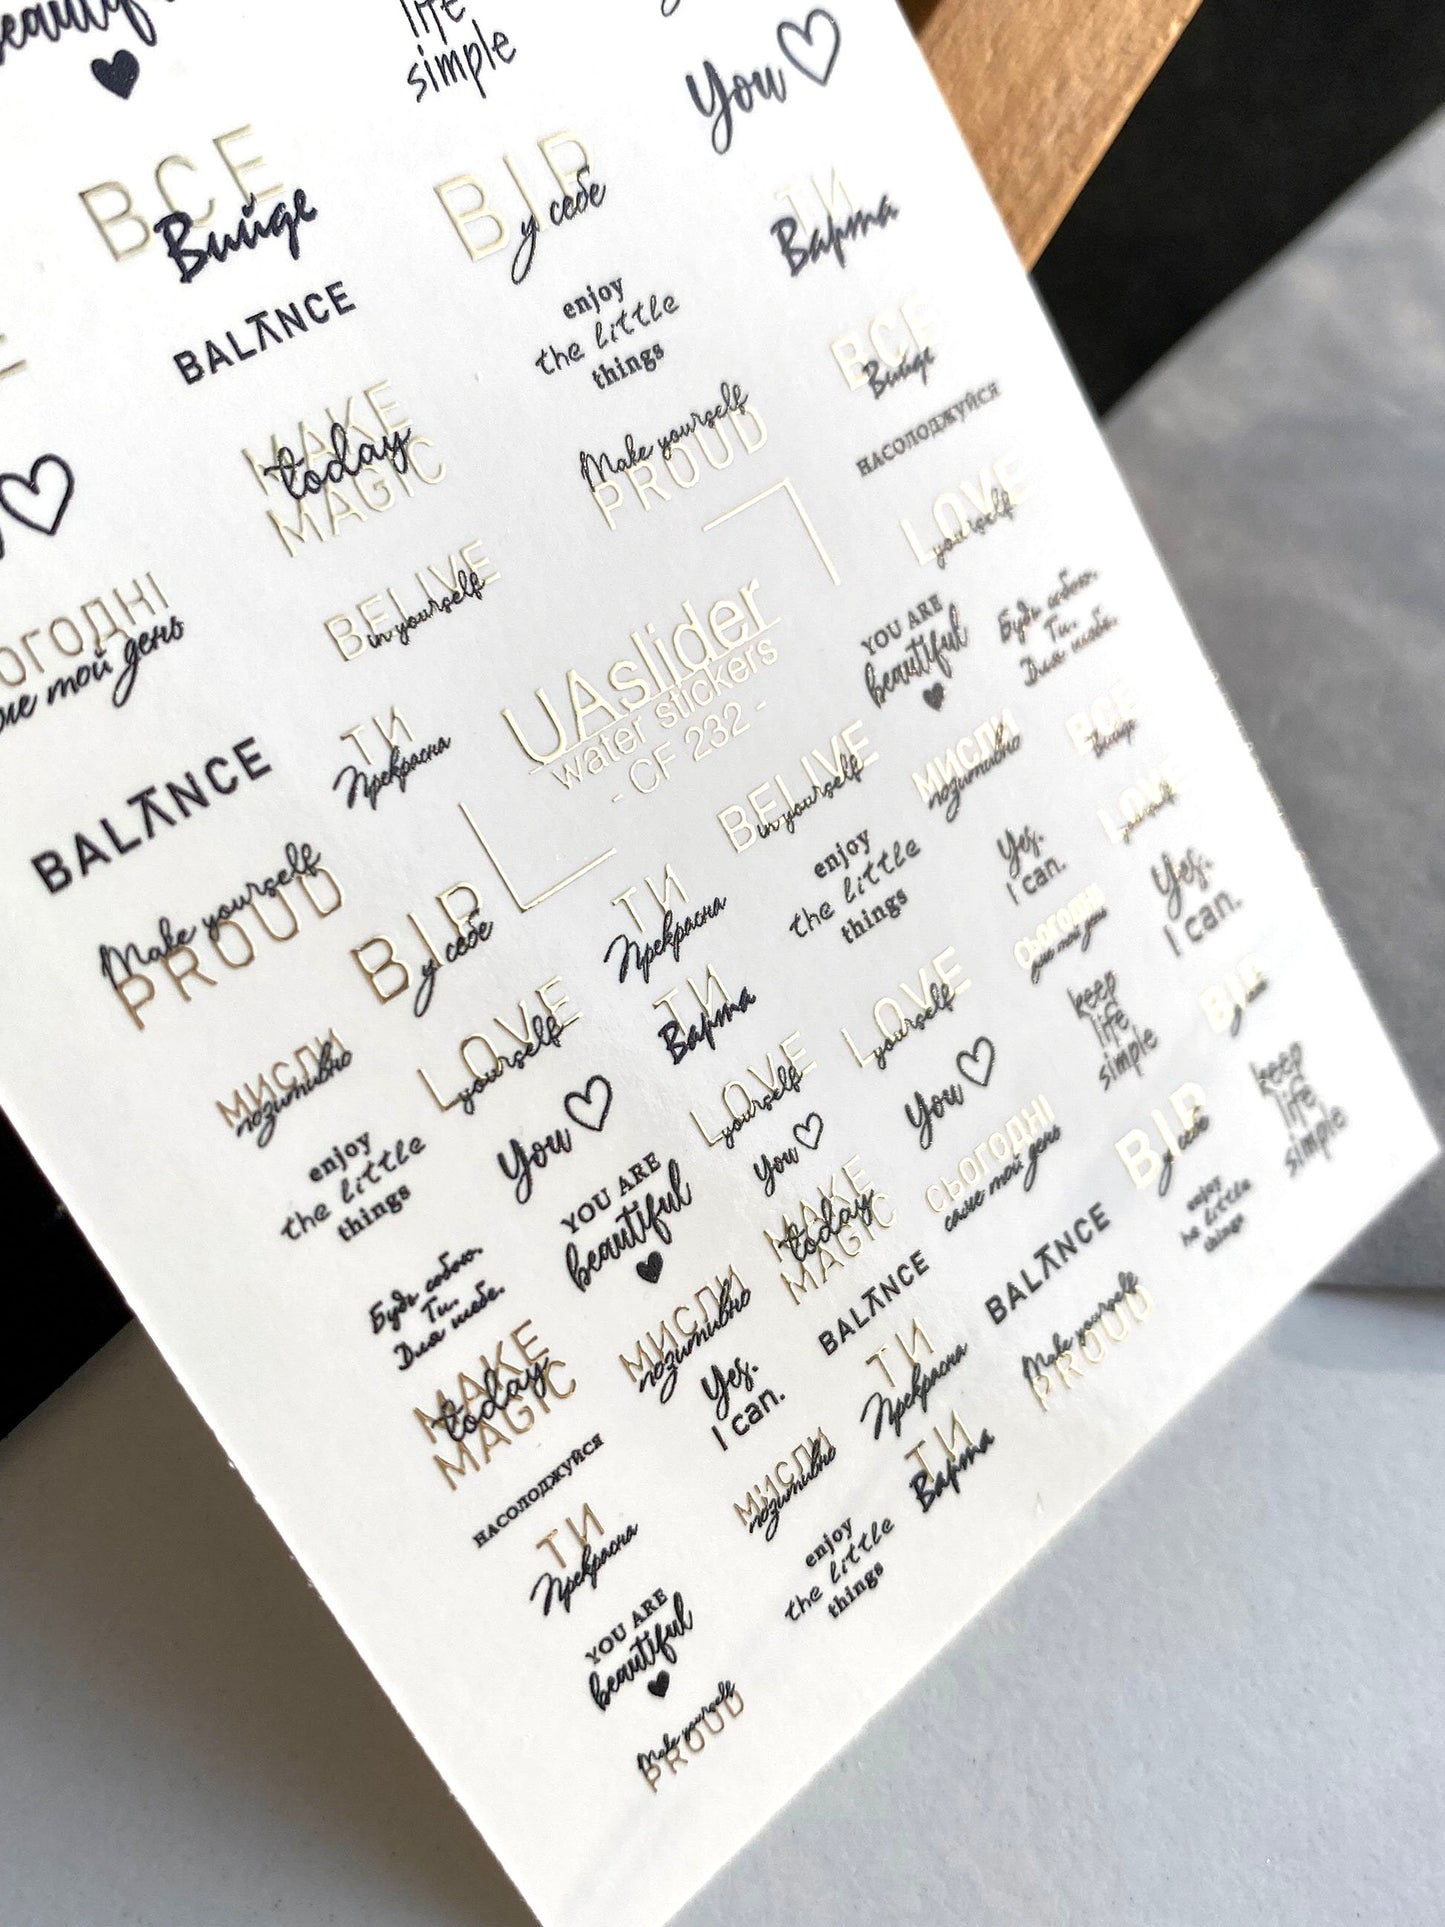 beautiful
life
simple
You
ВСЕ
Вийде
ВІР
у себе
ТИ
Варта
BALANCE
enjoy
the little
things
ВСЕ
Вийде
MAKE
today
MAGIC
Make yourself
PROUD
насолоджуйся
LOVE
yourself
СЬОГОДНІ
саме твой день
BELIVE
in yourself
UAslider
water stickers
- CF 232 -
YOU ARE
beautiful
Будь собою.
Ти.
Для тебе.
BALANCE
ТИ
Прекрасна
BELIVE
in yourself
МИСЛИ
позитивно
ВСЕ
Вийде
Make yourself
PROUD
ВІР
у себе
ТИ
Прекрасна
enjoy
the little
things
Yes.
I can.
LOVE
yourself
МИСЛИ
позитивно
LOVE
yourself
ТИ
Варта
LOVE
yourself
СЬОГОДНІ
саме твой день
Yes.
I can.
enjoy
the little
things
You
LOVE
yourself
You
keep
life
simple
ВІР
у себе
Будь собою.
Ти.
Для тебе.
YOU ARE
beautiful
You
MAKE
today
MAGIC
СЬОГОДНІ
саме твой день
ВІР
у себе
keep
life
simple
MAKE
today
MAGIC
МИСЛИ
позитивно
BALANCE
BALANCE
enjoy
he little
things
насолоджуйся
Yes.
I can.
ТИ
Прекрасна
Make yourself
PROUD
ТИ
Прекрасна
МИСЛИ
позитивно
ТИ
Варта
YOU ARE
beautiful
enjoy
the little
things
Make yourself
PROUD